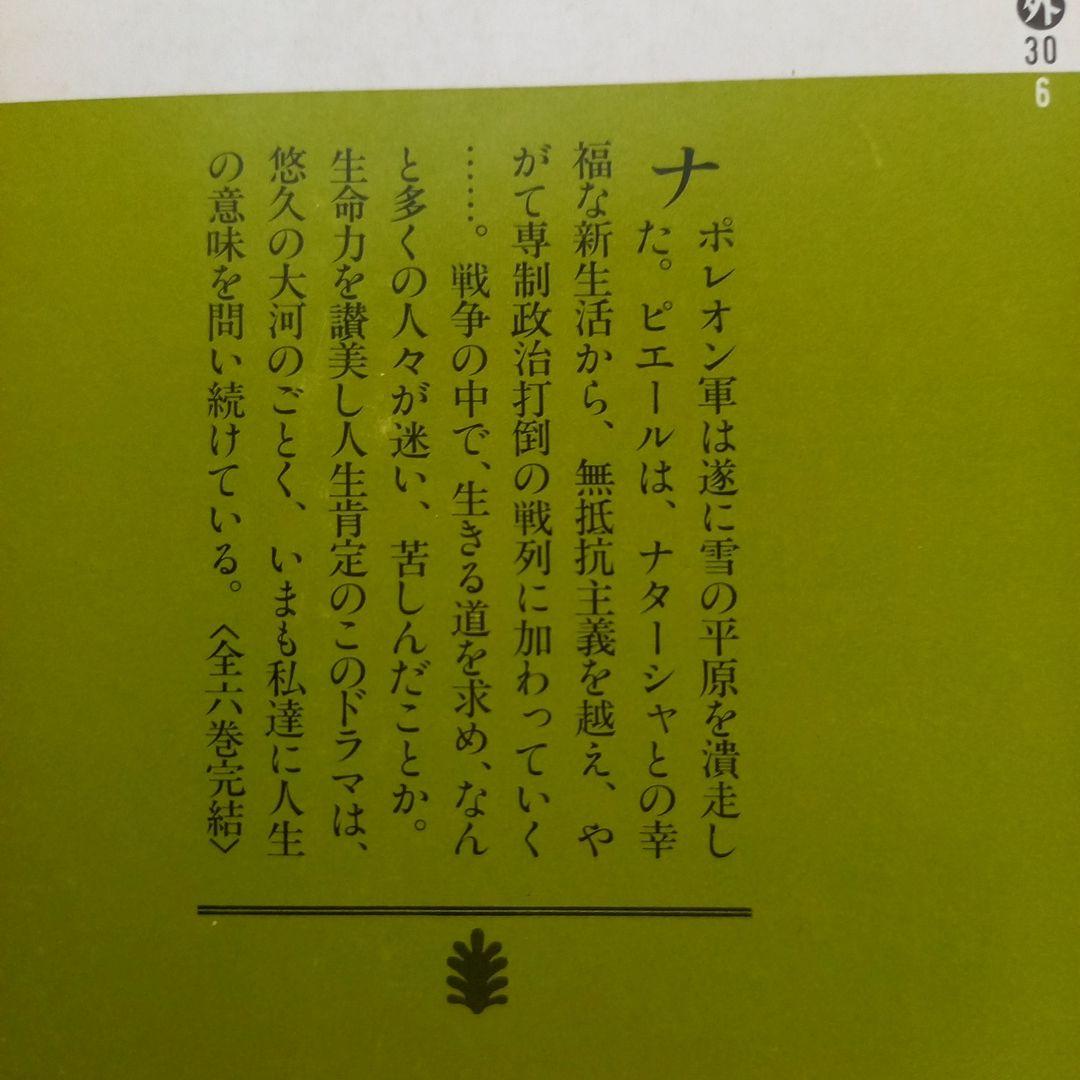 外
30
6
ナポレオン軍は遂に雪の平原を潰走し
た。ピエールは、ナターシャとの幸
福な新生活から、無抵抗主義を越え、や
がて専制政治打倒の戦列に加わっていく
……。戦争の中で、生きる道を求め、なん
と多くの人々が迷い、苦しんだことか。
生命力を讃美し人生肯定のこのドラマは、
悠久の大河のごとく、いまも私達に人生
の意味を問い続けている。〈全六巻完結〉